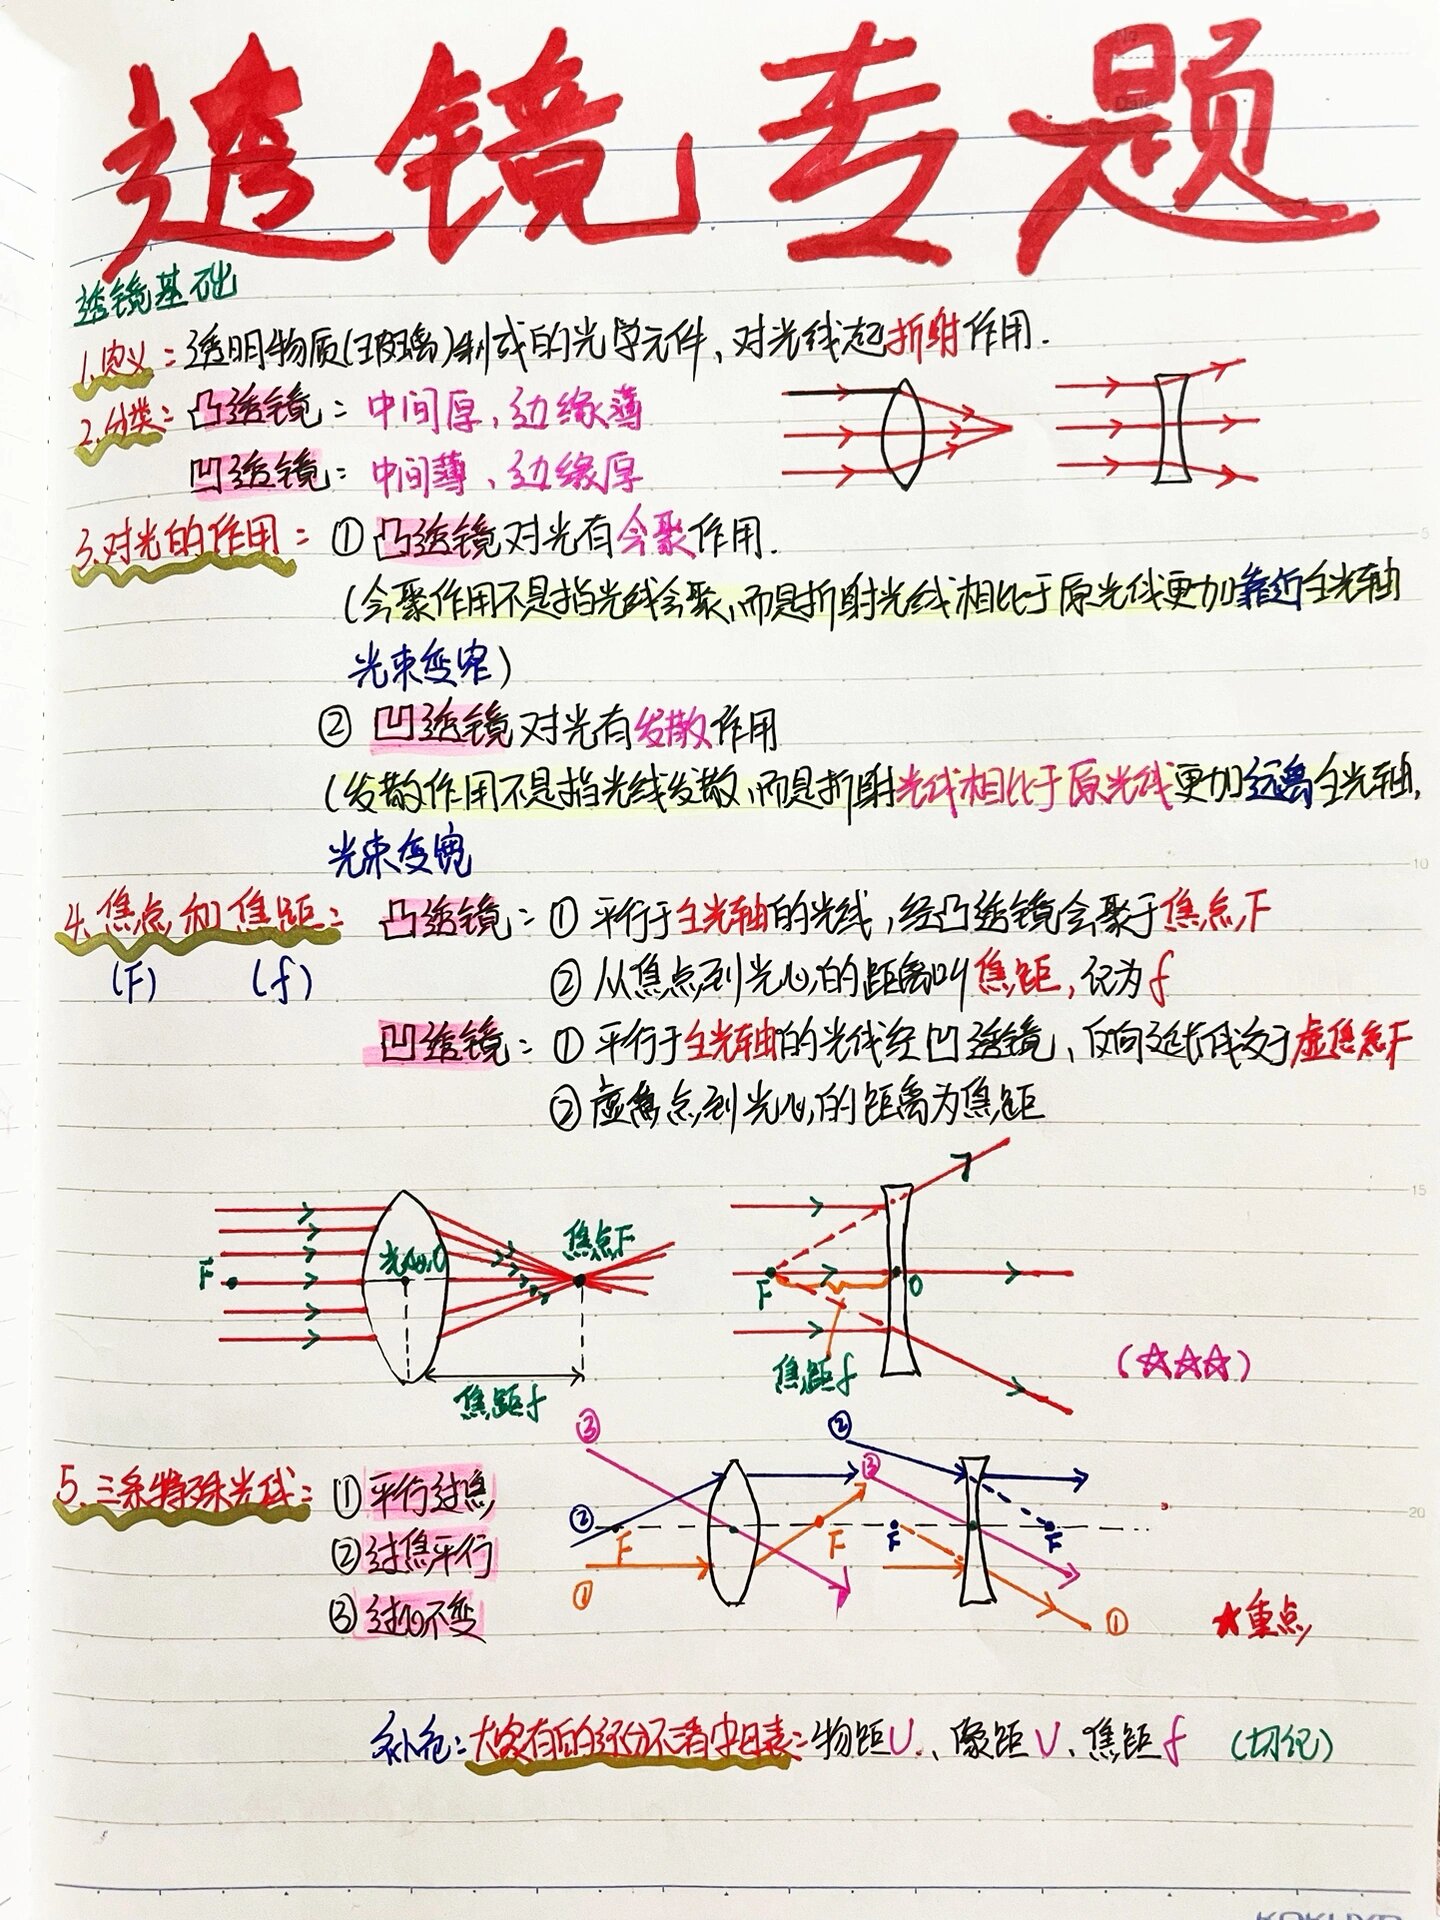 透镜专题
透镜基础
1.定义：透明物质(玻璃)制成的光学元件、对光线起折射作用.
2.分类：凸透镜：中间厚，边缘薄
凹透镜：中间薄、边缘厚
3.对光的作用：①凸透镜对光有会聚作用.
(会聚作用不是指光线会聚,而是折射光线相比于原光线更加靠近主光轴
光束变窄)
②凹透镜对光有发散作用
(发散作用不是指光线发散,而是折射光线相比于原光线更加远离主光轴,
光束变宽
4.焦点和焦距：凸透镜：①平行于主光轴的光线,经凸透镜会聚于焦点F
(F) (f) ②从焦点到光心的距离叫焦距,记为f
凹透镜：①平行于主光轴的光线经凹透镜、反向延长线交于虚焦点F
②虚焦点到光心的距离为焦距
F 光心O 焦点F
焦距f
F O
焦距f
(☆☆☆)
5.三条特殊光线：①平行过焦
②过焦平行
③过心不变
③ ② F F ①
② ③ F F ①
★重点
补充：大家有的区分不清字母表：物距U、像距V、焦距f (切记)